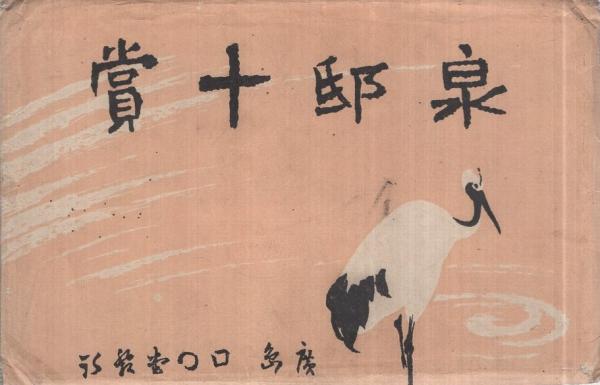 泉邸十賞
廣島 口〇堂發行